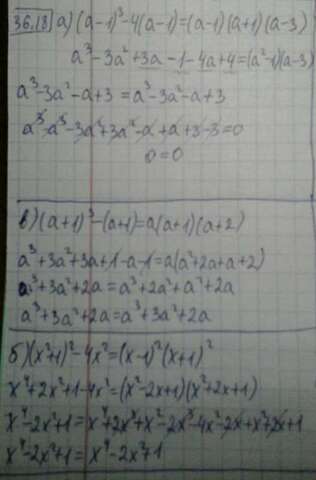 36.18 а) (a-1)³-4(a-1)=(a-1)(a+1)(a-3)
a³-3a²+3a-1-4a+4=(a²-1)(a-3)
a³-3a²-a+3=a³-3a²-a+3
a³-a³-3a²+3a²-a+a+3-3=0
0=0
в) (a+1)³-(a+1)=a(a+1)(a+2)
a³+3a²+3a+1-a-1=a(a²+2a+a+2)
a³+3a²+2a=a³+2a²+a²+2a
a³+3a²+2a=a³+3a²+2a
б) (x²+1)²-4x²=(x-1)²(x+1)²
x⁴+2x²+1-4x²=(x²-2x+1)(x²+2x+1)
x⁴-2x²+1=x⁴+2x³+x²-2x³-4x²-2x+x²+2x+1
x⁴-2x²+1=x⁴-2x²+1